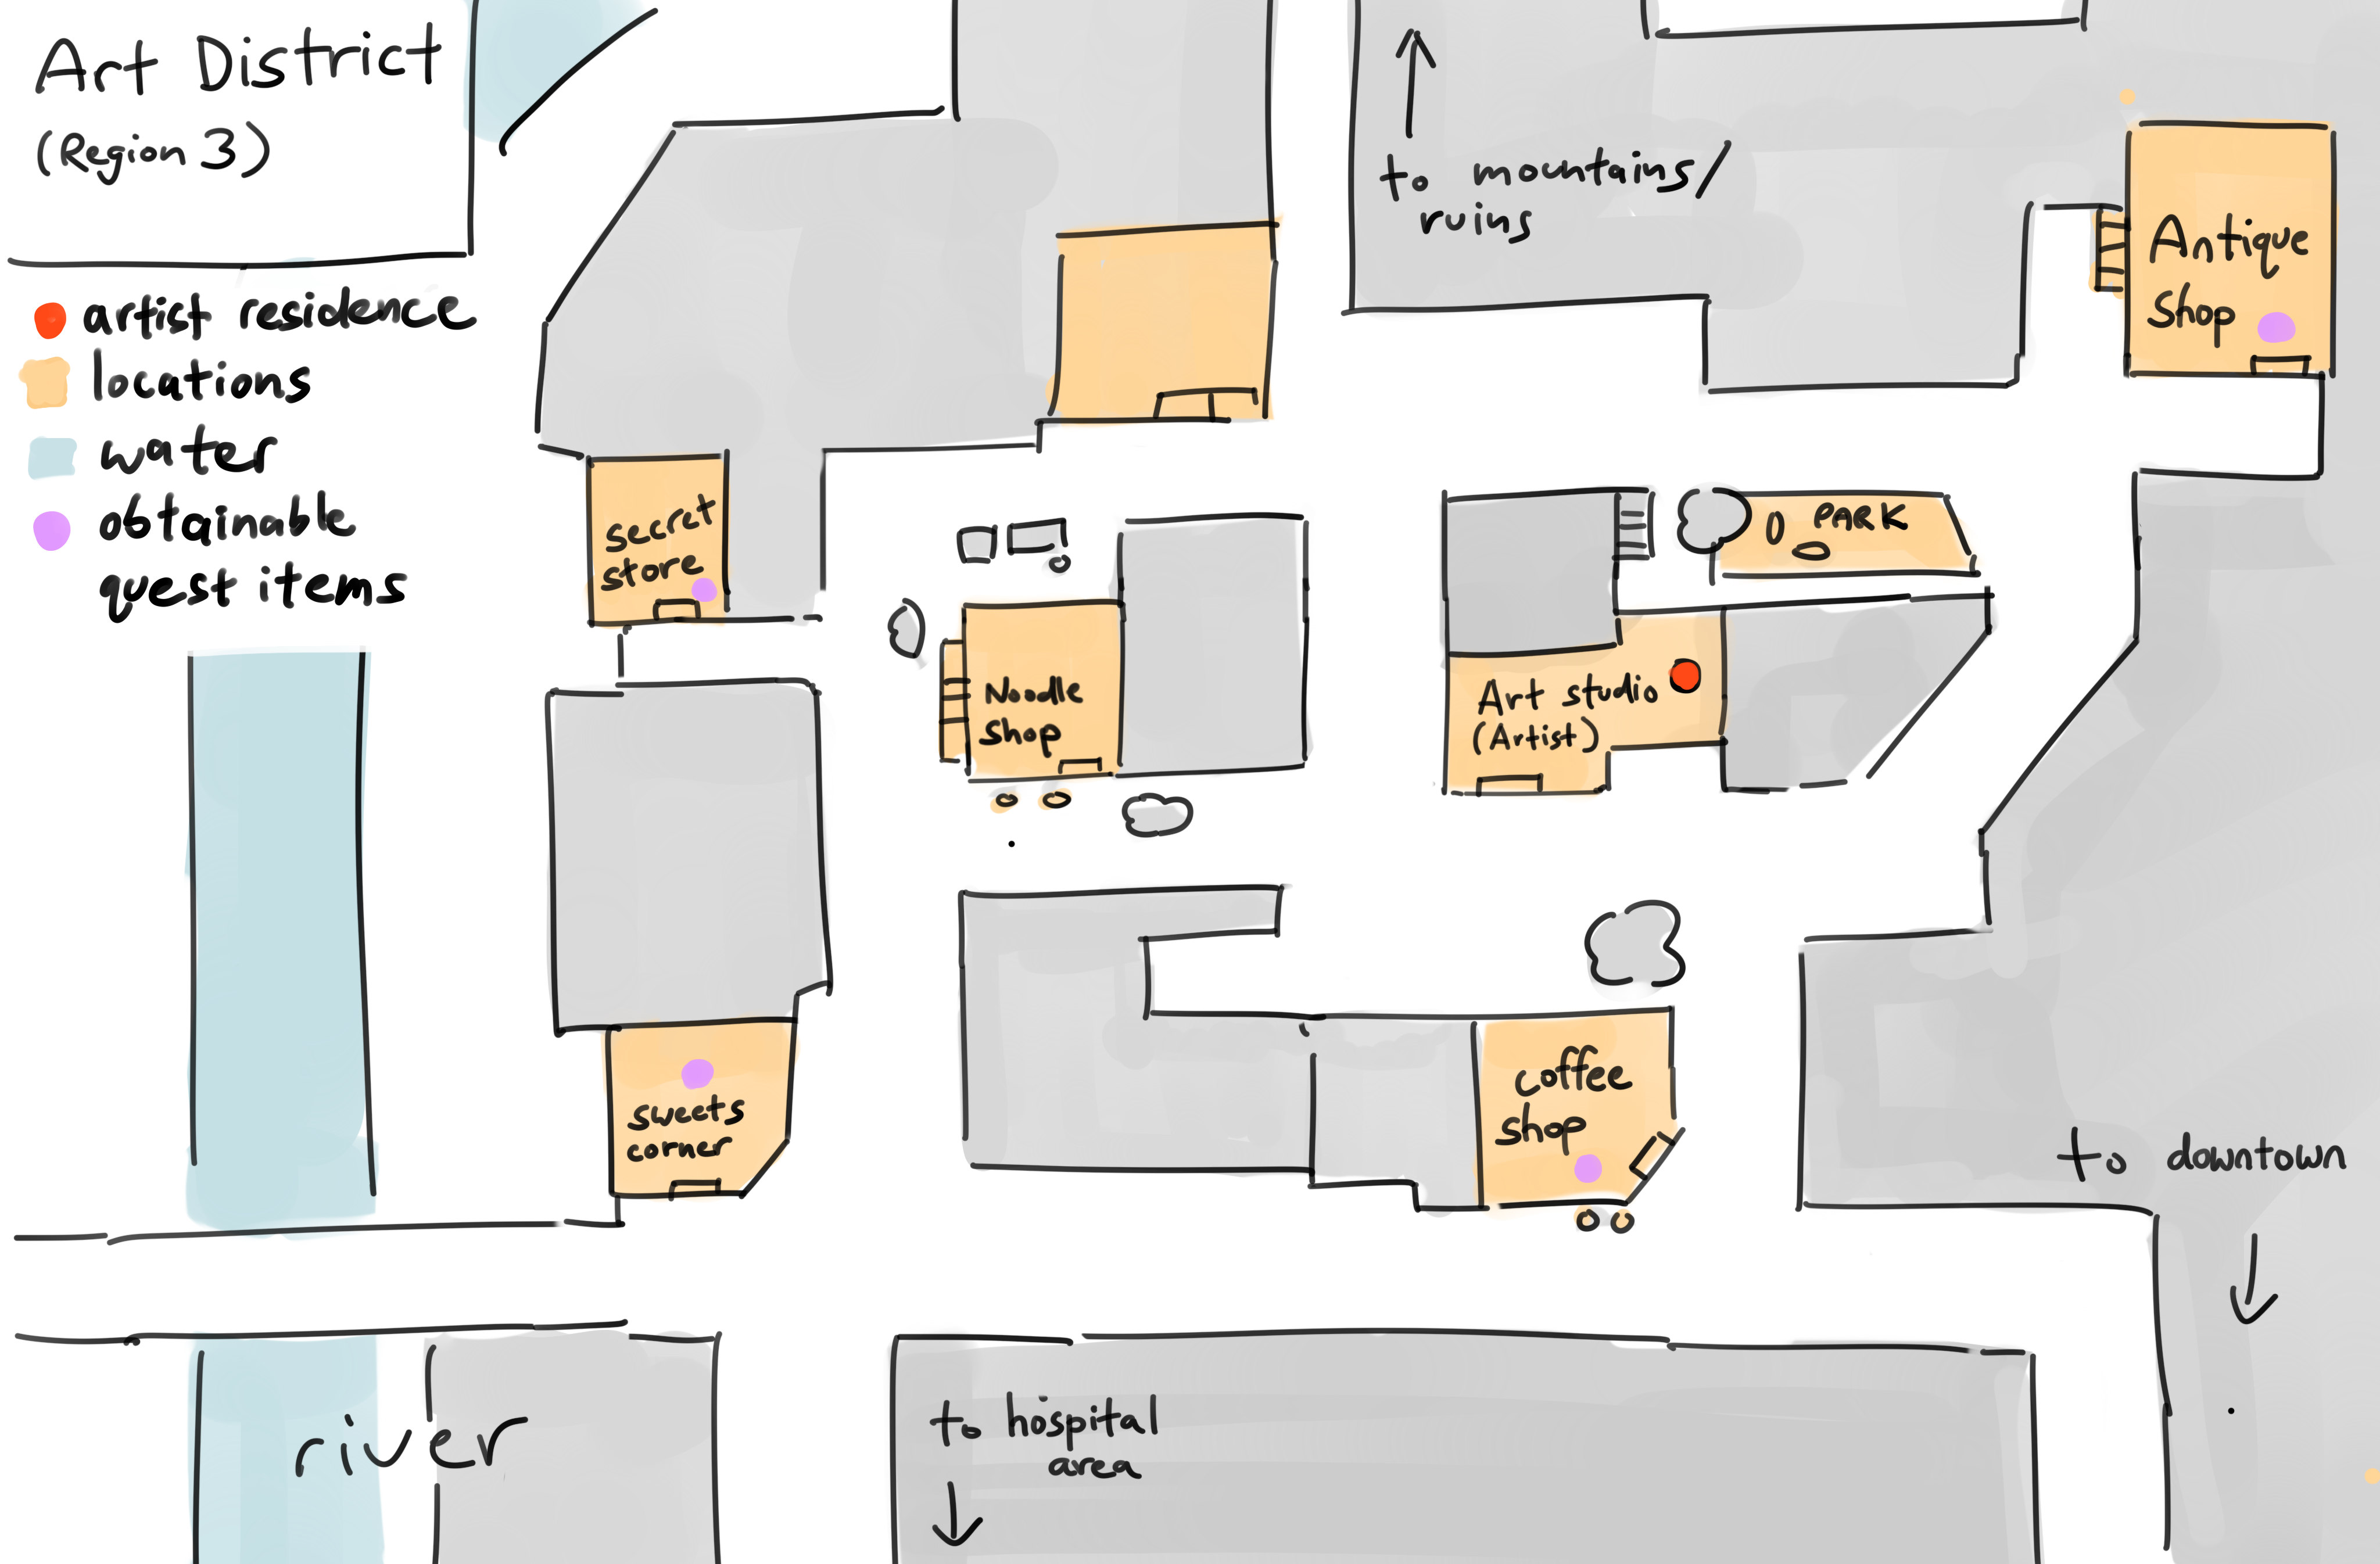 Art District
(Region 3)
artist residence
locations
water
obtainable
quest items
to mountains/
ruins
Antique
Shop
secret
store
PARK
Noodle
Shop
Art studio
(Artist)
coffee
shop
sweets
corner
to downtown
river
to hospital
area